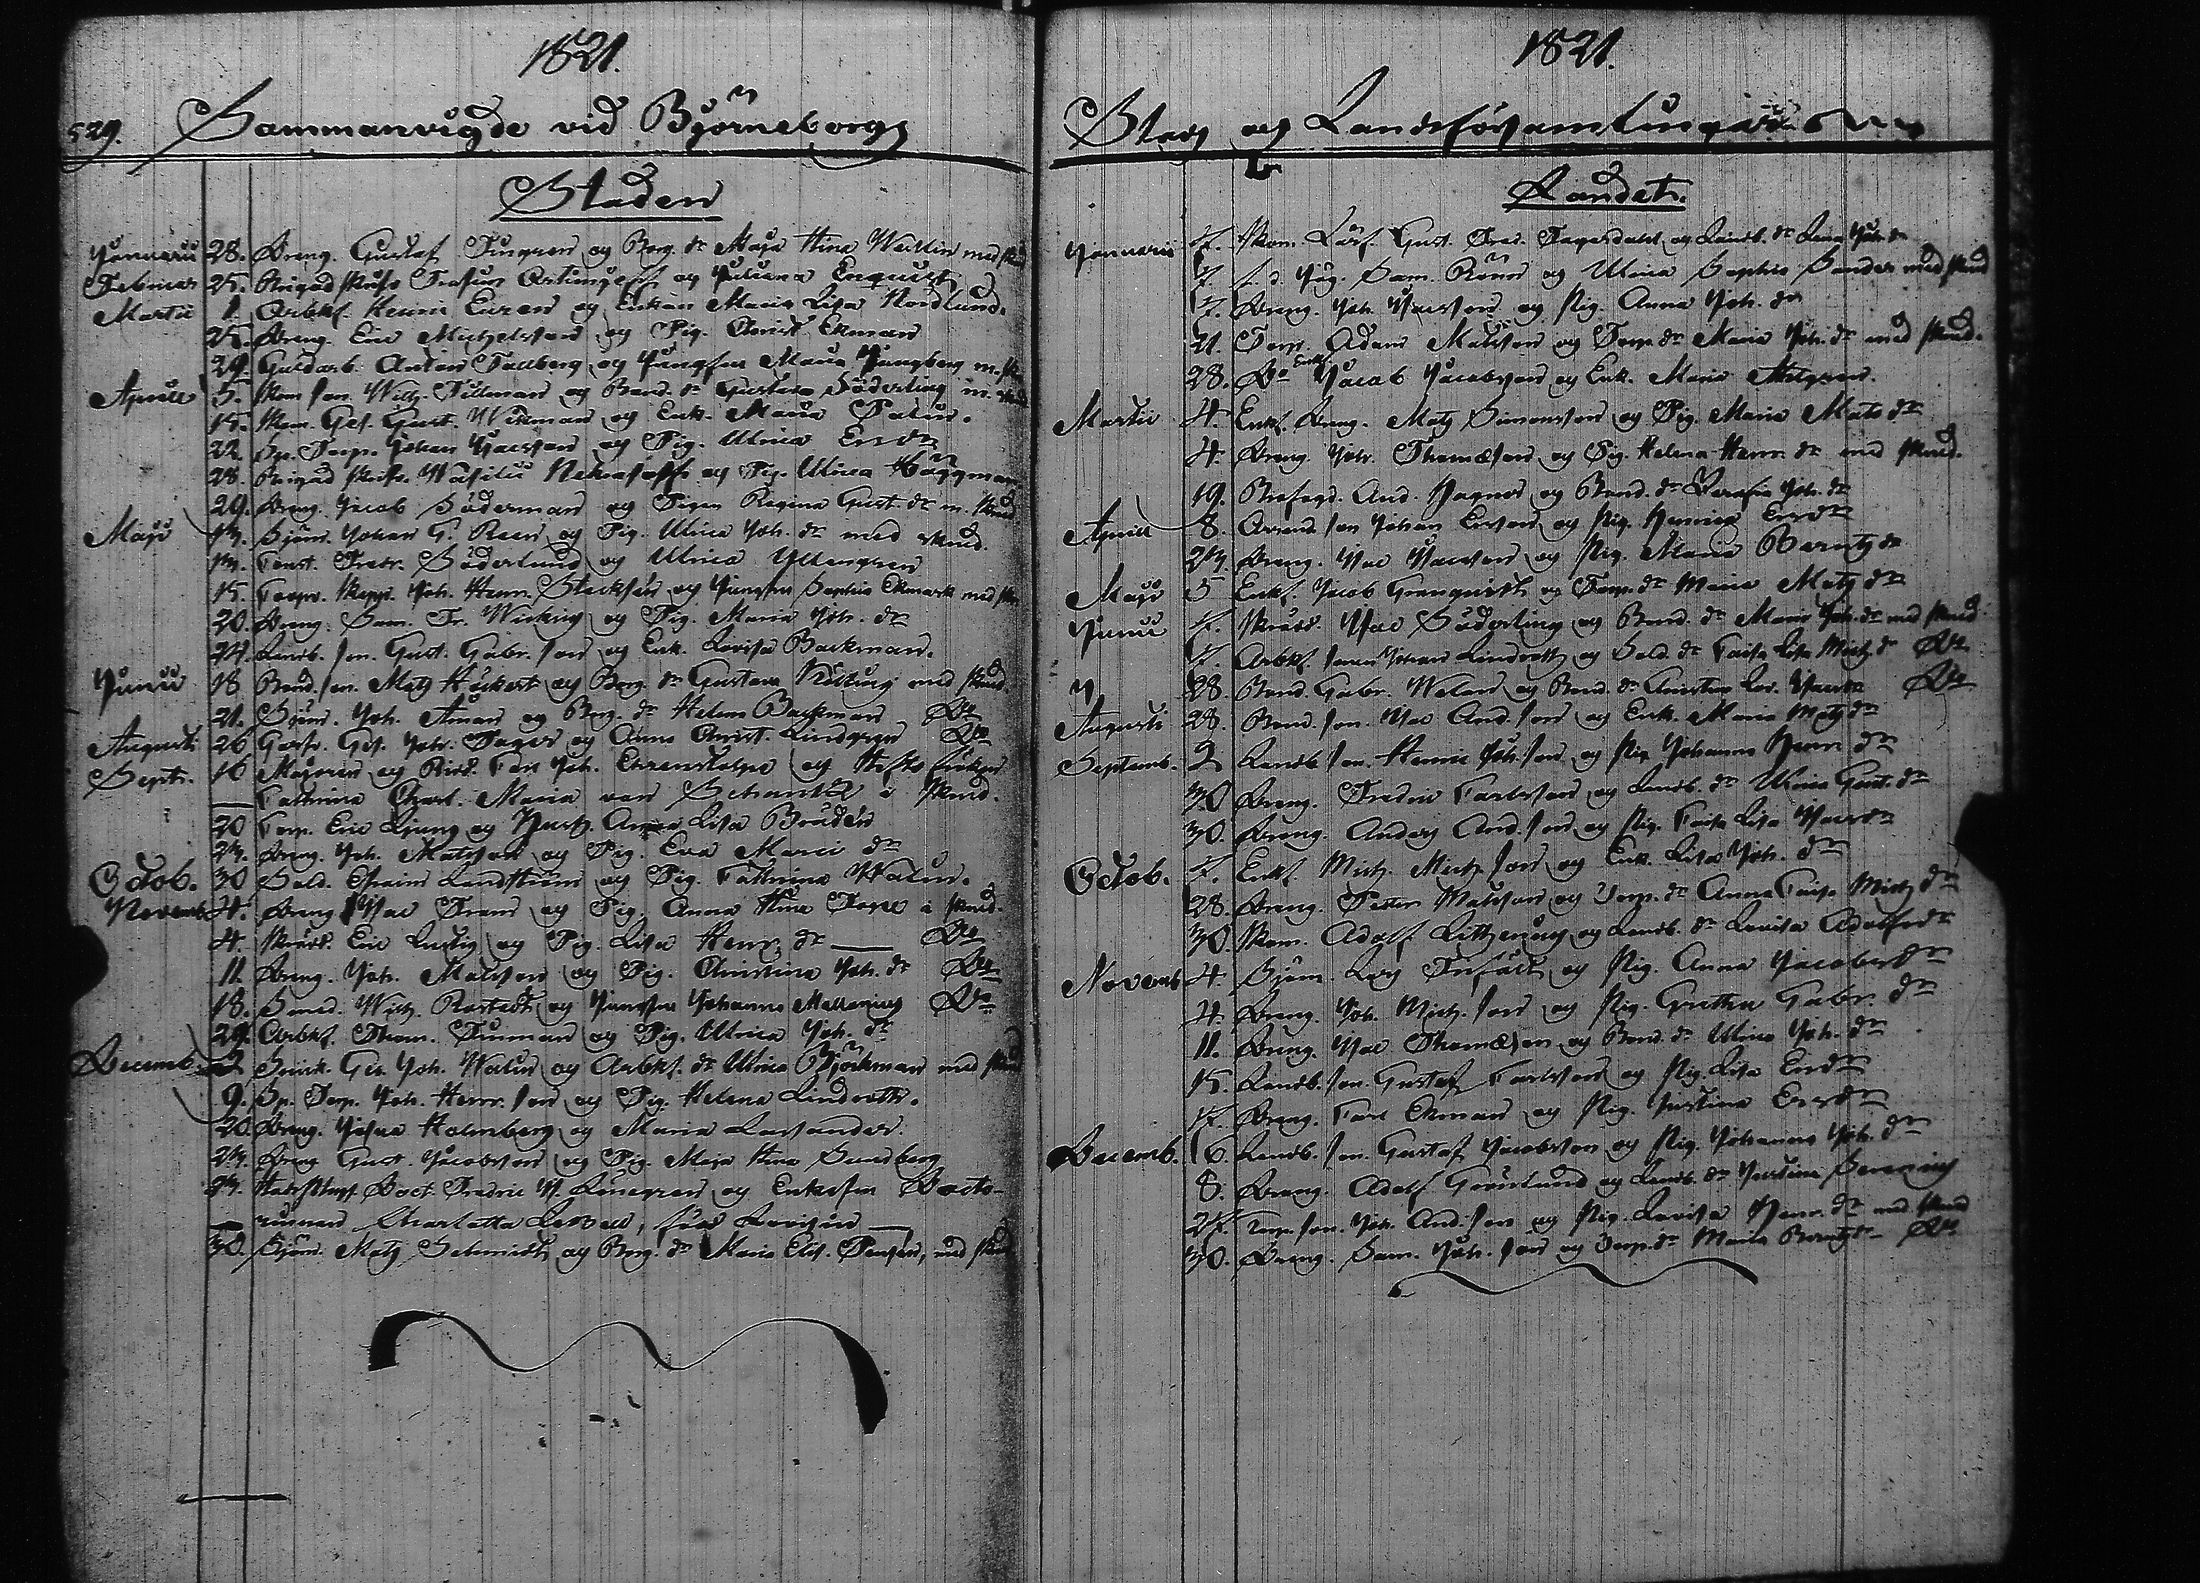 1821.
529. Sammanvigde vid Björneborgs
Staden
Januarii 28. Dreng. Gustaf Tingren og Borg. dr Maja Stina Wallin med skud
Februar 25. Brigad skuso og Juliana Enquist
Martii 1. Arbkf. Henric Euren og Enkan Maria Lisa Nordlund.
25. Dreng. Eric Michelsson og Pig. Christ. Ekman
29. Guldarb. Anton Fallberg og Jungfru Maria Ljungberg m. sku
Aprill 5. Skom son. Wilh. Tillman og Bond. dr Gustava Söderling m. skud
15. Skom. Ges. Gust. Wikman og Enk. Maria Palin.
22. Sp. Torp. Johan Isacsson og Pig. Ulrica Ersdr
28. Brigad skuso. Wasilii Nekrasoff og Pig. Ulrica Häggman
29. Dreng. Jacob Söderman og Pigan Regina Gust. dr m. skud
Maji 13. Sjöm. Johan G. Reen og Pig. Ulrica Joh. dr med skud.
13. Const. Fredr. Söderlund og Ulrica Yllengren
15. Coopv. Skepp. Joh. Henr. Stocksén og Jungfru Sophia Ekmark med sku
20. Dreng. Sam. Fr. Wicking og Pig. Maria Joh. dr
24. Landb. son. Gust. Gabr. son og Enk. Lovisa Backman.
Junii 18 Bond. son. Matz Heikert og Borg. dr Gustava Killing med skud.
21. Sjöm. Joh. Aman og Borg. dr Helena Backman Do
Augusti 26 Garfv. Ges. Joh. Fager og Anna Christ. Lindgren Do
Septr. 16 Majoren og Ridd. Carl Joh. Ehrenstolpe og
— Cathrina Charl. Maria von Schantz i skud.
20 Corp. Eric Ljung og Anna Lisa Brudén
23. Dreng. Joh. Matsson og Pig. Eva Marci dr
Octob. 30 Sold. Ephraim Landström og Pig. Cathrina Walin.
Novemb 4. Dreng Isac Frans og Pig. Anna Stina i skud.
4. Skrädd. Eric Lustig og Pig. Lisa Henr. dr — Do
11. Dreng. Joh. Matsson og Pig. Christina Joh. dr Do
18. Smed. Wilh. Rostedt og Jungfru Johanna Mellenius Do
29. Arbkf. Thom. Tuman og Pig. Ulrica Joh. dr
Decemb. 2 Snick. Ges. Joh. Walin og Arbkf. dr Ulrica Björkman med skud
9. Sp. Torp. Joh. Henr. son og Pig. Helena Lindroth.
20. Dreng. Josua Holmberg og Maria Lassander.
23. Dreng Gust. Jacobsson og Pig. Maja Stina Sundberg
23. Doct. Fredric W. Lönegren og Enkefru Docto-
— rinnan Charlotta —
30. Sjöm. Matz Schmidt og Borg. dr Maria Elis. med skud
1821.
Stads og Landsförsamlingar
Landet.
Januarii 7. Skom. Lärf. Gust. Fred. Fagerdahl og Landb. dr Lena Joh. dr
7. f. d. Jäg. Sam. Brunn og Ulrica Sophia Sander med skud
7. Dreng. Joh. Isacsson og Pig. Anna Joh. dr
21. Torp. Adam Matsson og Torp. dr Maria Joh. dr med skud.
28. Do Enkl. Jacob Jacobsson og Enk. Maria
Martii 4. Enkl. Dreng. Matz Simonsson og Pig. Maria Matsdr
4. Dreng. Joh. Thomæson og Pig. Helena Henr. dr med skud.
19. And. Hagner og Bond. dr Serafia Joh. dr
Aprill 8. Arrend son Johan Ersson og Pig. Henrica Ersdr
23. Dreng. Isac Isacsson og Pig. Maria Berntzdr
Maji 5 Enkl. Jacob Granquist og Torp. dr Maria Matz dr
Junii 7. Skrädd. Isac Söderling og Bond. dr Maria Joh. dr med skud
7. Arbkf. sonen Johan Lindroth og Sold. dr Caisa Lisa Mich. dr Do
28. Bond. Gabr. Welin og Bond. dr Christina Lov. Isacsdr Do
Augusti 28. Bond. son. Isac And. son og Enk. Maria Matz dr
Septemb. 2 Landb. son. Henric Joh. son og Pig. Johanna Henr. dr
30 Dreng. Fredric Carlsson og Landb. dr Ulrica Gust. dr
30. Dreng. Anders And. son og Pig. Caisa Lisa Isacsdr
Octob. 7. Enkl. Mich. Mich. son og Enk. Lisa Joh. dr
28. Dreng. Petter Matsson og Torp. dr Anna Caisa Mich. dr
30. Skom. Adolf og Landb. dr Lovisa Adolfsdr
Novemb 4. Sjöm. Lars og Pig. Anna Jacobsdr
4. Dreng. Joh. Mich. son og Pig. Gretha Gabr. dr
11. Dreng. Isac Thomæson og Bond. dr Ulrica Joh. dr
15. Landb. son. Gustaf Carlsson og Pig. Lisa Ersdr
17. Dreng. Carl Ekman og Pig. Justina Ersdr
Decemb. 6. Landb. son. Gustaf Jacobsson og Pig. Johanna Joh. dr
8. Dreng. Adolf Grönlund og Landb. dr Justina Serenius
27. Torp. son. Joh. And. son og Pig. Lovisa Henr. dr med skud
30. Dreng. Sam. Joh. son og Torp. dr Maria Berntzdr Do